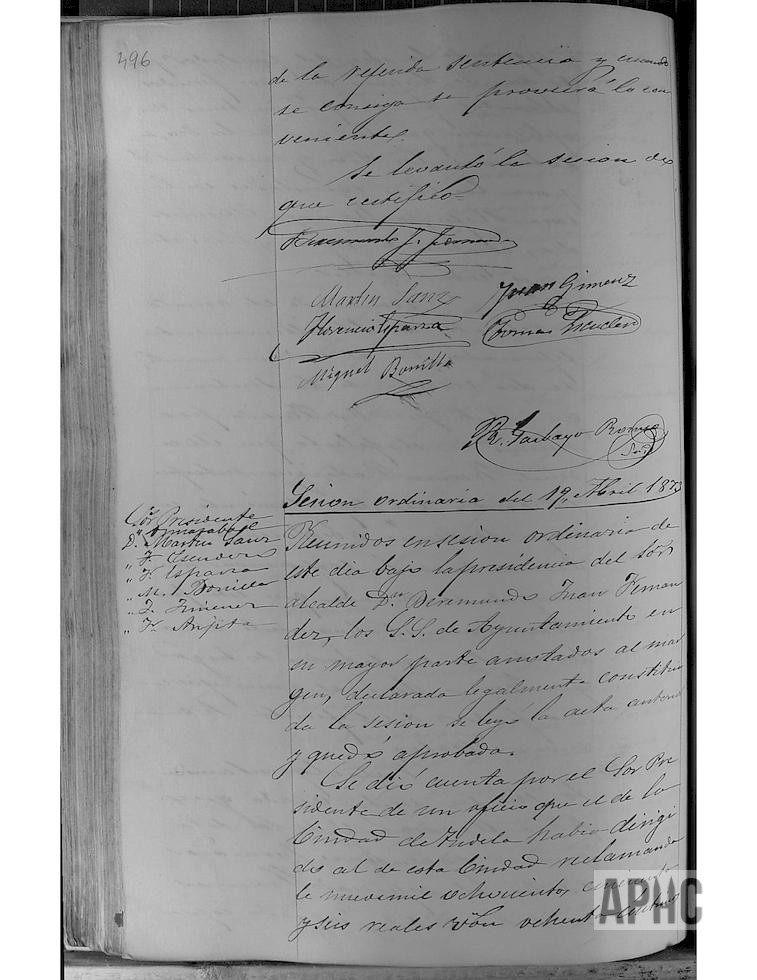 496
de la referida sentencia y cuando
se consiga se proveerá lo con
veniente.
Se levantó la sesion de
que certifico=
Deremundo J. Fernand
Martin Sanz
Juan Gimenz
Florencio Esparza
Tomas Escudero
Miguel Bonilla
R. Garbayo
Sesion ordinaria del 19, Abril 1873
Sõr Presidente
D. Martin Sanz
" T. Escudero
" F. Esparza
" M. Bonilla
" J. Jimenez
" F. Arpita
Reunidos en sesion ordinaria de
este dia bajo la presidencia del Sõr
alcalde Dn. Deremundo Juan Fernan
dez, los S.S. de Ayuntamiento en
su mayor parte anotados al mar
gen, declarada legalmente constitui
da la sesion se leyó la acta anterior
y quedó aprobada.
Se dió cuenta por el Sor Pre
sidente de un oficio que el de la
Ciudad de Tudela habia dirigi
do al de esta Ciudad reclamando
le nuevemil ochocientos cincuenta
y seis reales võn ochenta centms
APHC